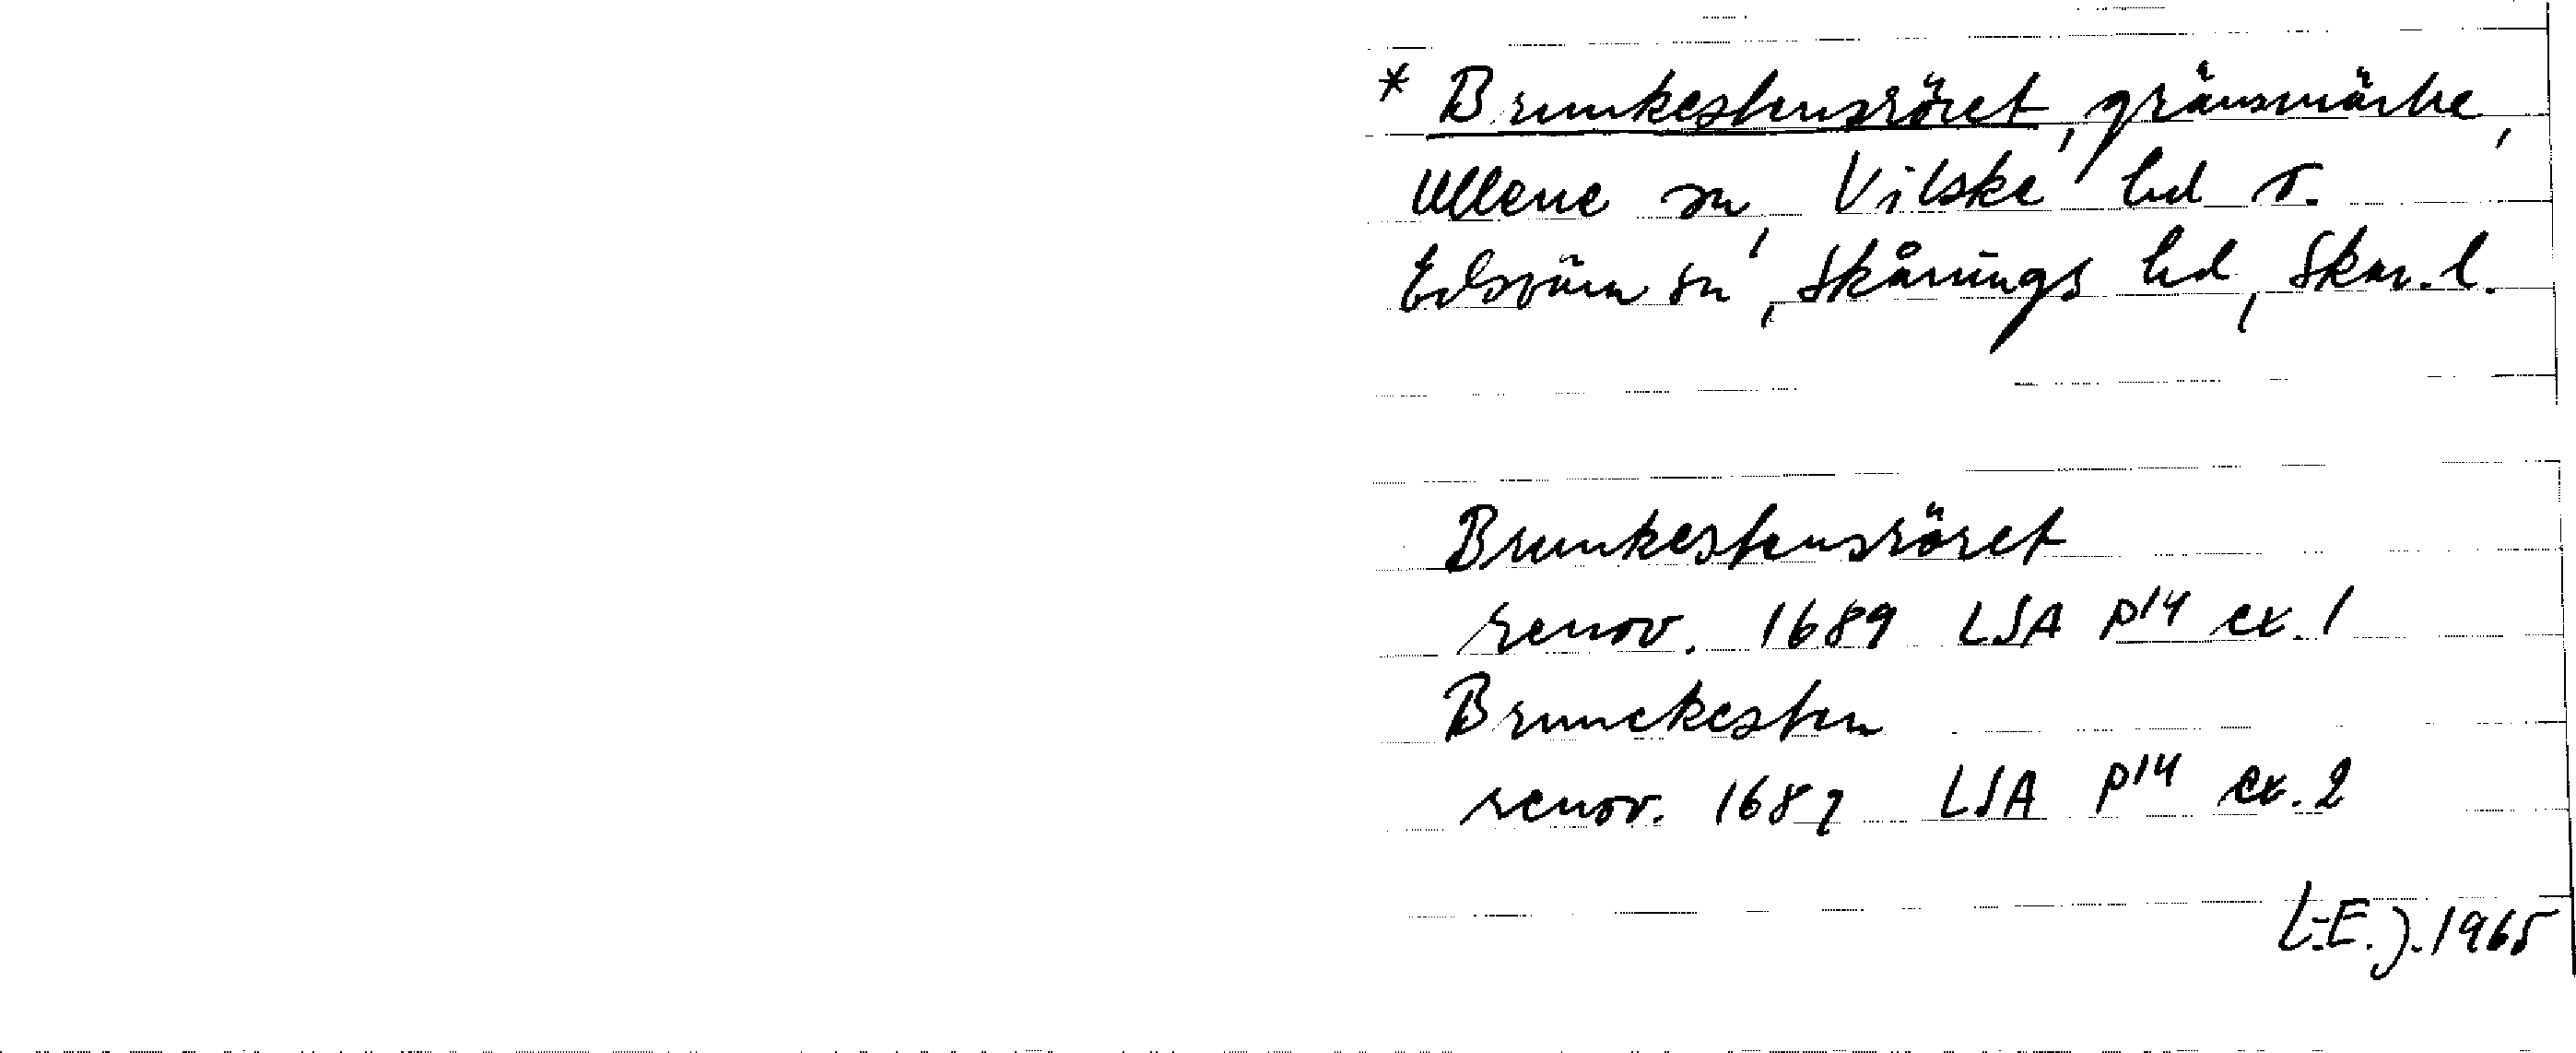 * Brunkestensröret, gränsmärke,
Ullene sn, Vilske hd o.
Edsvära sn, Skånings hd, Skar. l.
Brunkestensröret
renov. 1689 LSA P14 ex. 1
Brunckesten
renov. 1689 LSA P14 ex. 2
L-E. J. 1965